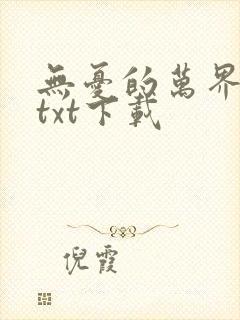 無憂的萬界
txt下載
倪霞